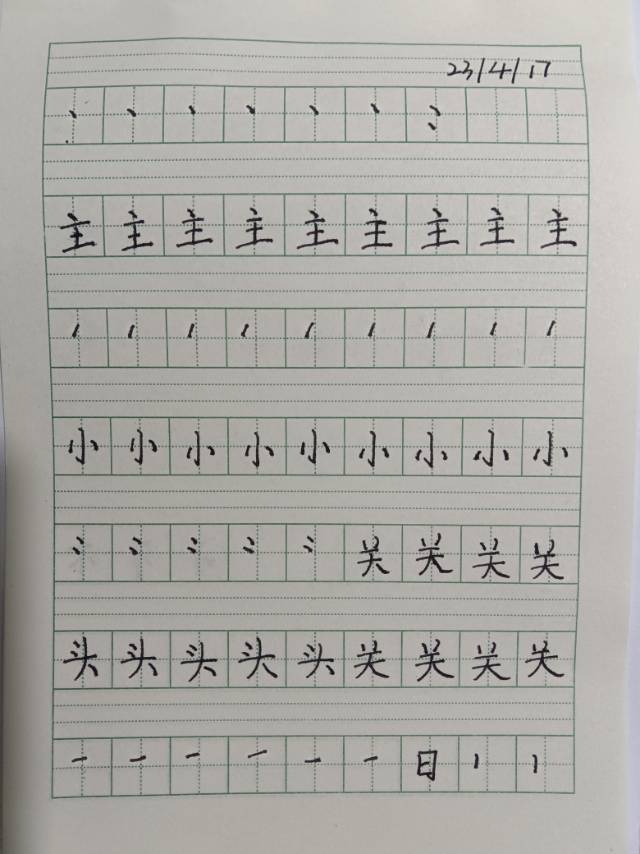 23/4/17
丶 丶 丶 丶 丶 丶 冫
主 主 主 主 主 主 主 主 主
丿 丿 丿 丿 丿 丿 丿 丿 丿
小 小 小 小 小 小 小 小 小
冫 冫 冫 冫 冫 关 关 关 关
头 头 头 头 头 关 关 关 关
一 一 一 一 一 一 日 丨 丨